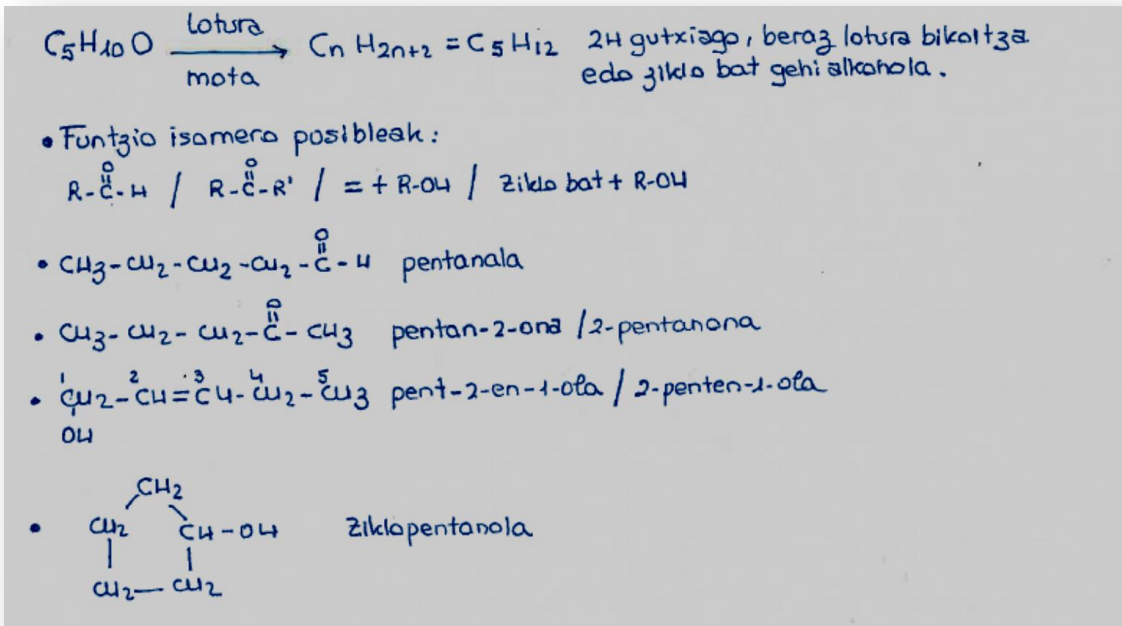 C5H10O lotura mota → CnH2n+2 = C5H12 2H gutxiago, beraz lotura bikoitza
edo ziklo bat gehi alkohola.
• Funtzio isomero posibleak:
R-C(=O)-H / R-C(=O)-R' / = + R-OH / Ziklo bat + R-OH
• CH3-CH2-CH2-CH2-C(=O)-H pentanala
• CH3-CH2-CH2-C(=O)-CH3 pentan-2-ona / 2-pentanona
1 2 3 4 5
• CH2-CH=CH-CH2-CH3 pent-2-en-1-ola / 2-penten-1-ola
OH
CH2
• CH2 CH-OH Ziklopentanola
CH2-CH2